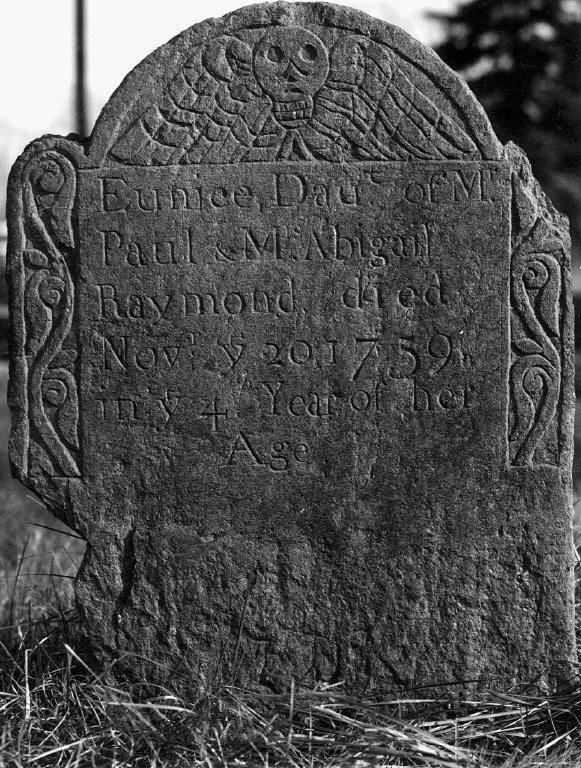 Eunice, Dauʳ of Mʳ.
Paul & Mʳˢ Abigail
Raymond, died
Novʳ. yᵉ 20, 1759,
in yᵉ 4ᵗʰ Year of her
Age